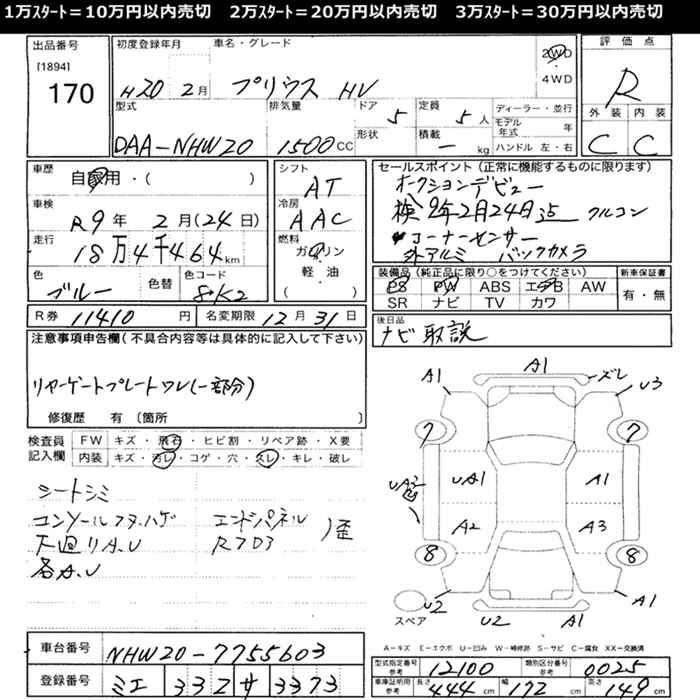 1万ｽﾀｰﾄ＝10万円以内売切 2万ｽﾀｰﾄ＝20万円以内売切 3万ｽﾀｰﾄ＝30万円以内売切
出品番号 初度登録年月 車名・グレード 評価点
[1894] 2WD
170 H20 2月 プリウス HV 4WD R
型式 排気量 ドア 5 定員 5人 ディーラー・並行 外装 内装
モデル年式 年
DAA-NHW20 1500CC 形状 積載 - kg ハンドル 左・右 C C
車歴 自家用・( ) シフト AT セールスポイント(正常に機能するものに限ります)
オークションデビュー
車検 R9年 2月(24日) 冷房 AAC 検 9年2月24日 クルコン
走行 18万4千464km 燃料 ガソリン コーナーセンサー
軽・油 外アルミ バックカメラ
色 ブルー 色替 色コード 8K2 ( ) 装備品(純正品に限り○をつけてください) 新車保証書
PS PW ABS エアB AW 有・無
SR ナビ TV カワ
R券 11410円 名変期限 12月31日 後日品
ナビ取説
注意事項申告欄(不具合内容等は具体的に記入して下さい)
リヤゲートプレートワレ(一部分)
修復歴 有 〔箇所 〕
検査員記入欄 FW キズ・飛石・ヒビ割・リペア跡・X要
内装 キズ・汚レ・コゲ・穴・スレ・キレ・破レ
シートシミ
コンソールフタハゲ エンドパネル 歪
下廻りA.U R7D3
各A.U
A1 A1 ズレ U3
7 7
UA2 UA1 A1
A2 A3
8 8
U2 U2 A1 A1
スペア
A=キズ E=エクボ U=凹み W=補修跡 S=サビ C=腐食 XX=交換済
車台番号 NHW20-7755603
型式指定番号 参考 12100 類別区分番号 参考 0025
登録番号 ミエ 332 サ 3373
車庫証明用 参考 長さ 444cm 幅 172cm 高さ 149cm